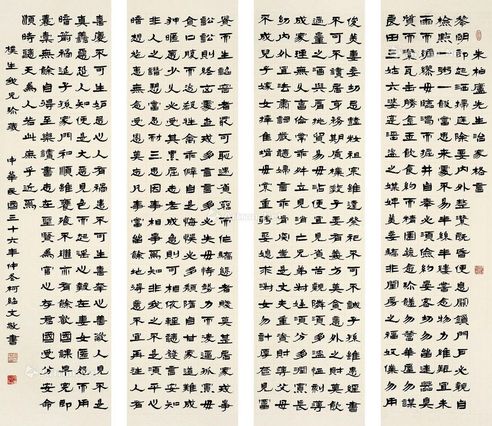 朱柏廬先生治家格言
黎明即起洒掃庭除要內外整潔既昏便息關鎖門戶必親自
檢點一粥一飯當思來處不易半絲半縷恆念物力維艱宜未
雨而綢繆毋臨渴而掘井自奉必須儉約宴客切勿留連器具
質而潔瓦缶勝金玉飲食約而精園蔬愈珍饈勿營華屋勿謀
良田三姑六婆實淫盜之媒婢美妾嬌非閨房之福奴僕勿用
俊美妻妾切忌豔妝祖宗雖遠祭祀不可不誠子孫雖愚經書
不可不讀居身務期質樸教子要有義方莫貪意外之財莫飲
過量之酒與肩挑貿易毋佔便宜見貧苦親鄰須加溫恤刻薄
成家理無久享倫常乖舛立見消亡兄弟叔姪須分多潤寡長
幼內外宜法肅辭嚴聽婦言乖骨肉豈是丈夫重貲財薄父母
不成人子嫁女擇佳壻毋索重聘娶媳求淑女勿計厚奩見富
貴而生諂容者最可恥遇貧窮而作驕態者賤莫甚居家戒爭
訟訟則終凶處世戒多言言多必失毋恃勢力而凌逼孤寡毋
貪口腹而恣殺生禽乖僻自是悔誤必多頹惰自甘家道難成
狎暱惡少久必受其累屈志老成急則可相依輕聽發言安知
非人之譖愬當忍耐三思因事相爭焉知非我之不是須平心
暗想施惠無念受恩莫忘凡事當留餘地得意不宜再往人有
喜慶不可生妒忌心人有禍患不可生喜幸心善欲人見不是
真善惡恐人知便是大惡見色而起淫心報在妻女匿怨而用
暗箭禍延子孫家門和順雖饔飧不繼亦有餘歡國課早完即
囊橐無餘自得至樂讀書志在聖賢為官心存君國守分安命
順時聽天為人若此庶乎近焉
樸生我兄珍藏 中華民國三十六年仲冬柯紹文敬書